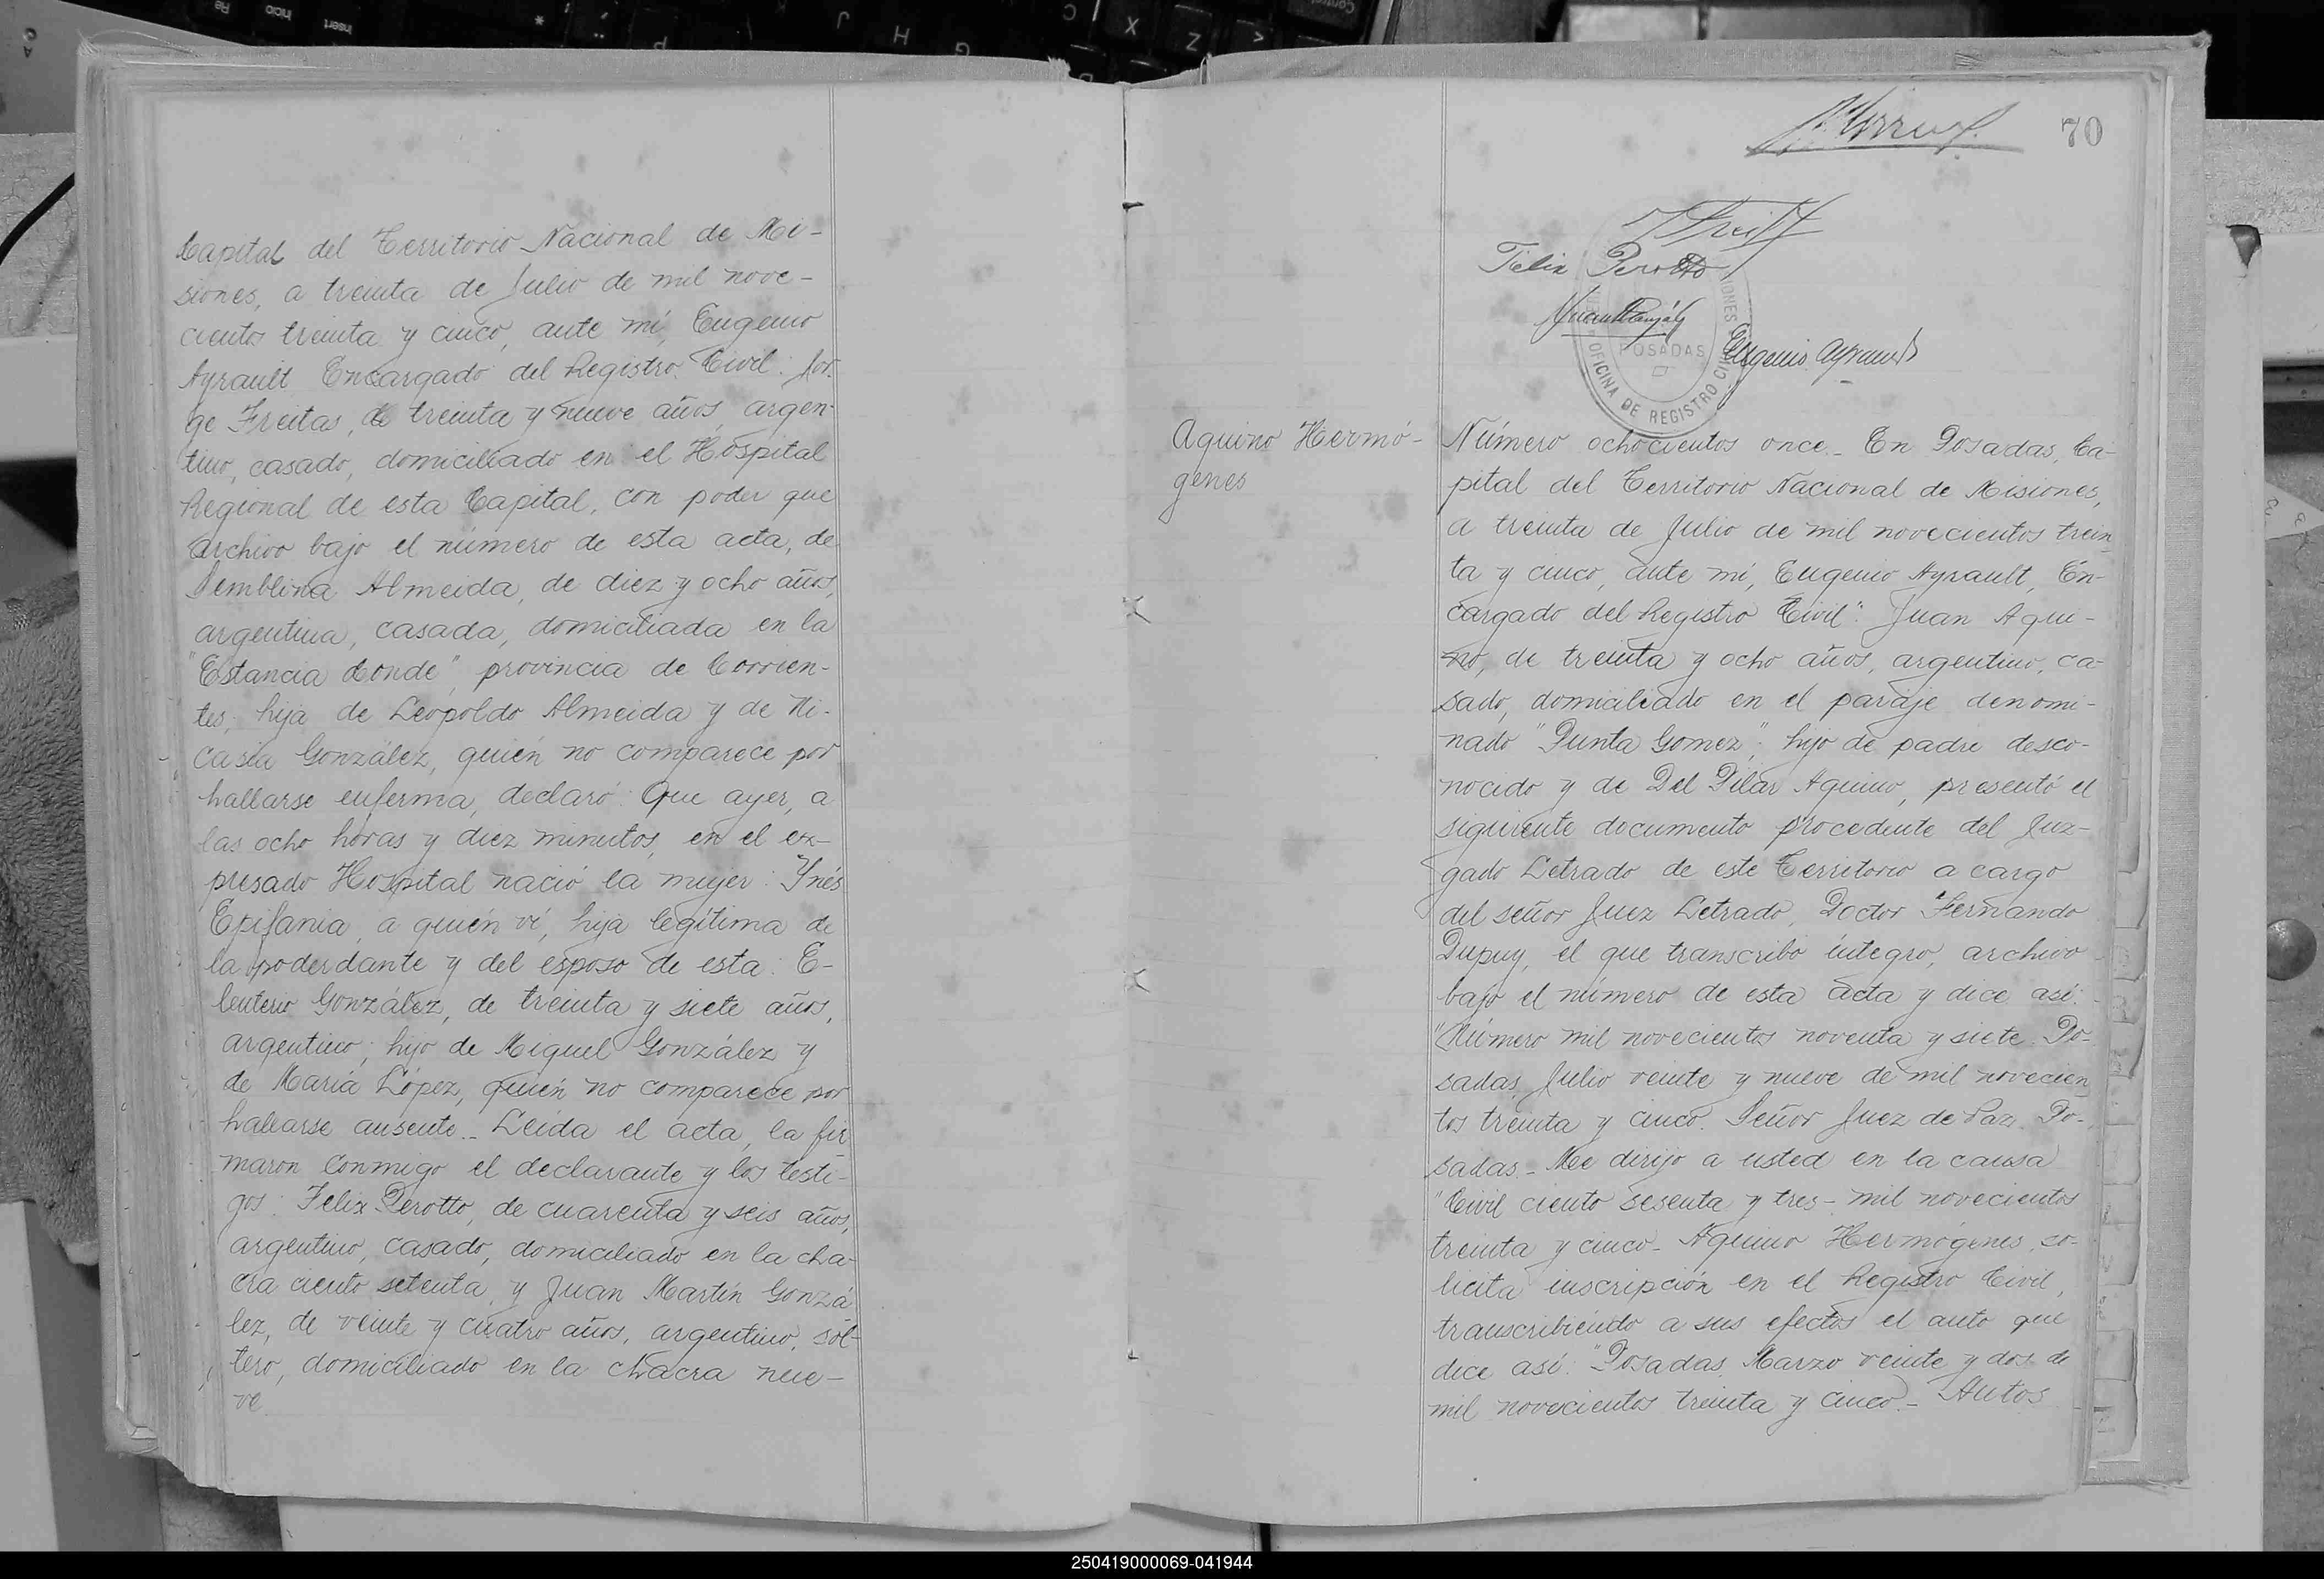 Capital del Territorio Nacional de Mi-
siones, a treinta de Julio de mil nove-
cientos treinta y cinco, ante mí, Eugenio
Ayrault Encargado del Registro Civil: Jor-
ge Freitas, de treinta y nueve años, argen-
tino, casado, domiciliado en el Hospital
Regional de esta Capital, con poder que
archivo bajo el número de esta acta, de
Semblina Almeida, de diez y ocho años,
argentina, casada, domiciliada en la
"Estancia Conde", provincia de Corrien-
tes, hija de Leopoldo Almeida y de Ni-
casia González, quién no comparece por
hallarse enferma, declaró: Que ayer, a
las ocho horas y diez minutos, en el ex-
presado Hospital nació la mujer: Ynés
Epifania, a quién ví, hija legítima de
la poderdante y del esposo de esta: E-
leuterio González, de treinta y siete años,
argentino, hijo de Miguel González y
de María López, quién no comparece por
hallarse ausente._ Leída el acta, la fir
maron conmigo el declarante y los testi-
gos: Felix Perotto, de cuarenta y seis años,
argentino, casado, domiciliado en la cha-
cra ciento setenta, y Juan Martín Gonzá
lez, de veinte y cuatro años, argentino, sol-
tero, domiciliado en la chacra nue-
ve
70
Felix Perotto
POSADAS
Eugenio Ayrault
OFICINA DE REGISTRO CIVIL
Aquino Hermó-
genes
Número ochocientos once._ En Posadas, Ca-
pital del Territorio Nacional de Misiones,
a treinta de Julio de mil novecientos trein
ta y cinco, ante mí, Eugenio Ayrault, En-
cargado del Registro Civil: Juan Aqui-
no, de treinta y ocho años, argentino, ca-
sado, domiciliado en el paraje denomi-
nado "Punta Gomez", hijo de padre desco-
nocido y de Del Pilar Aquino, presentó el
siguiente documento procedente del Juz-
gado Letrado de este Territorio a cargo
del señor Juez Letrado, Doctor Fernando
Dupuy, el que transcribo íntegro, archivo
bajo el número de esta acta y dice así:
"Número mil novecientos noventa y siete. Po-
sadas, Julio veinte y nueve de mil novecien
tos treinta y cinco. Señor Juez de Paz. Po-
sadas._ Me dirijo a usted en la causa
"Civil ciento sesenta y tres - mil novecientos
treinta y cinco - Aquino Hermógenes, so-
licita inscripción en el Registro Civil,
transcribiendo a sus efectos el auto que
dice así: "Posadas, Marzo veinte y dos de
mil novecientos treinta y cinco._ Autos
250419000069-041944